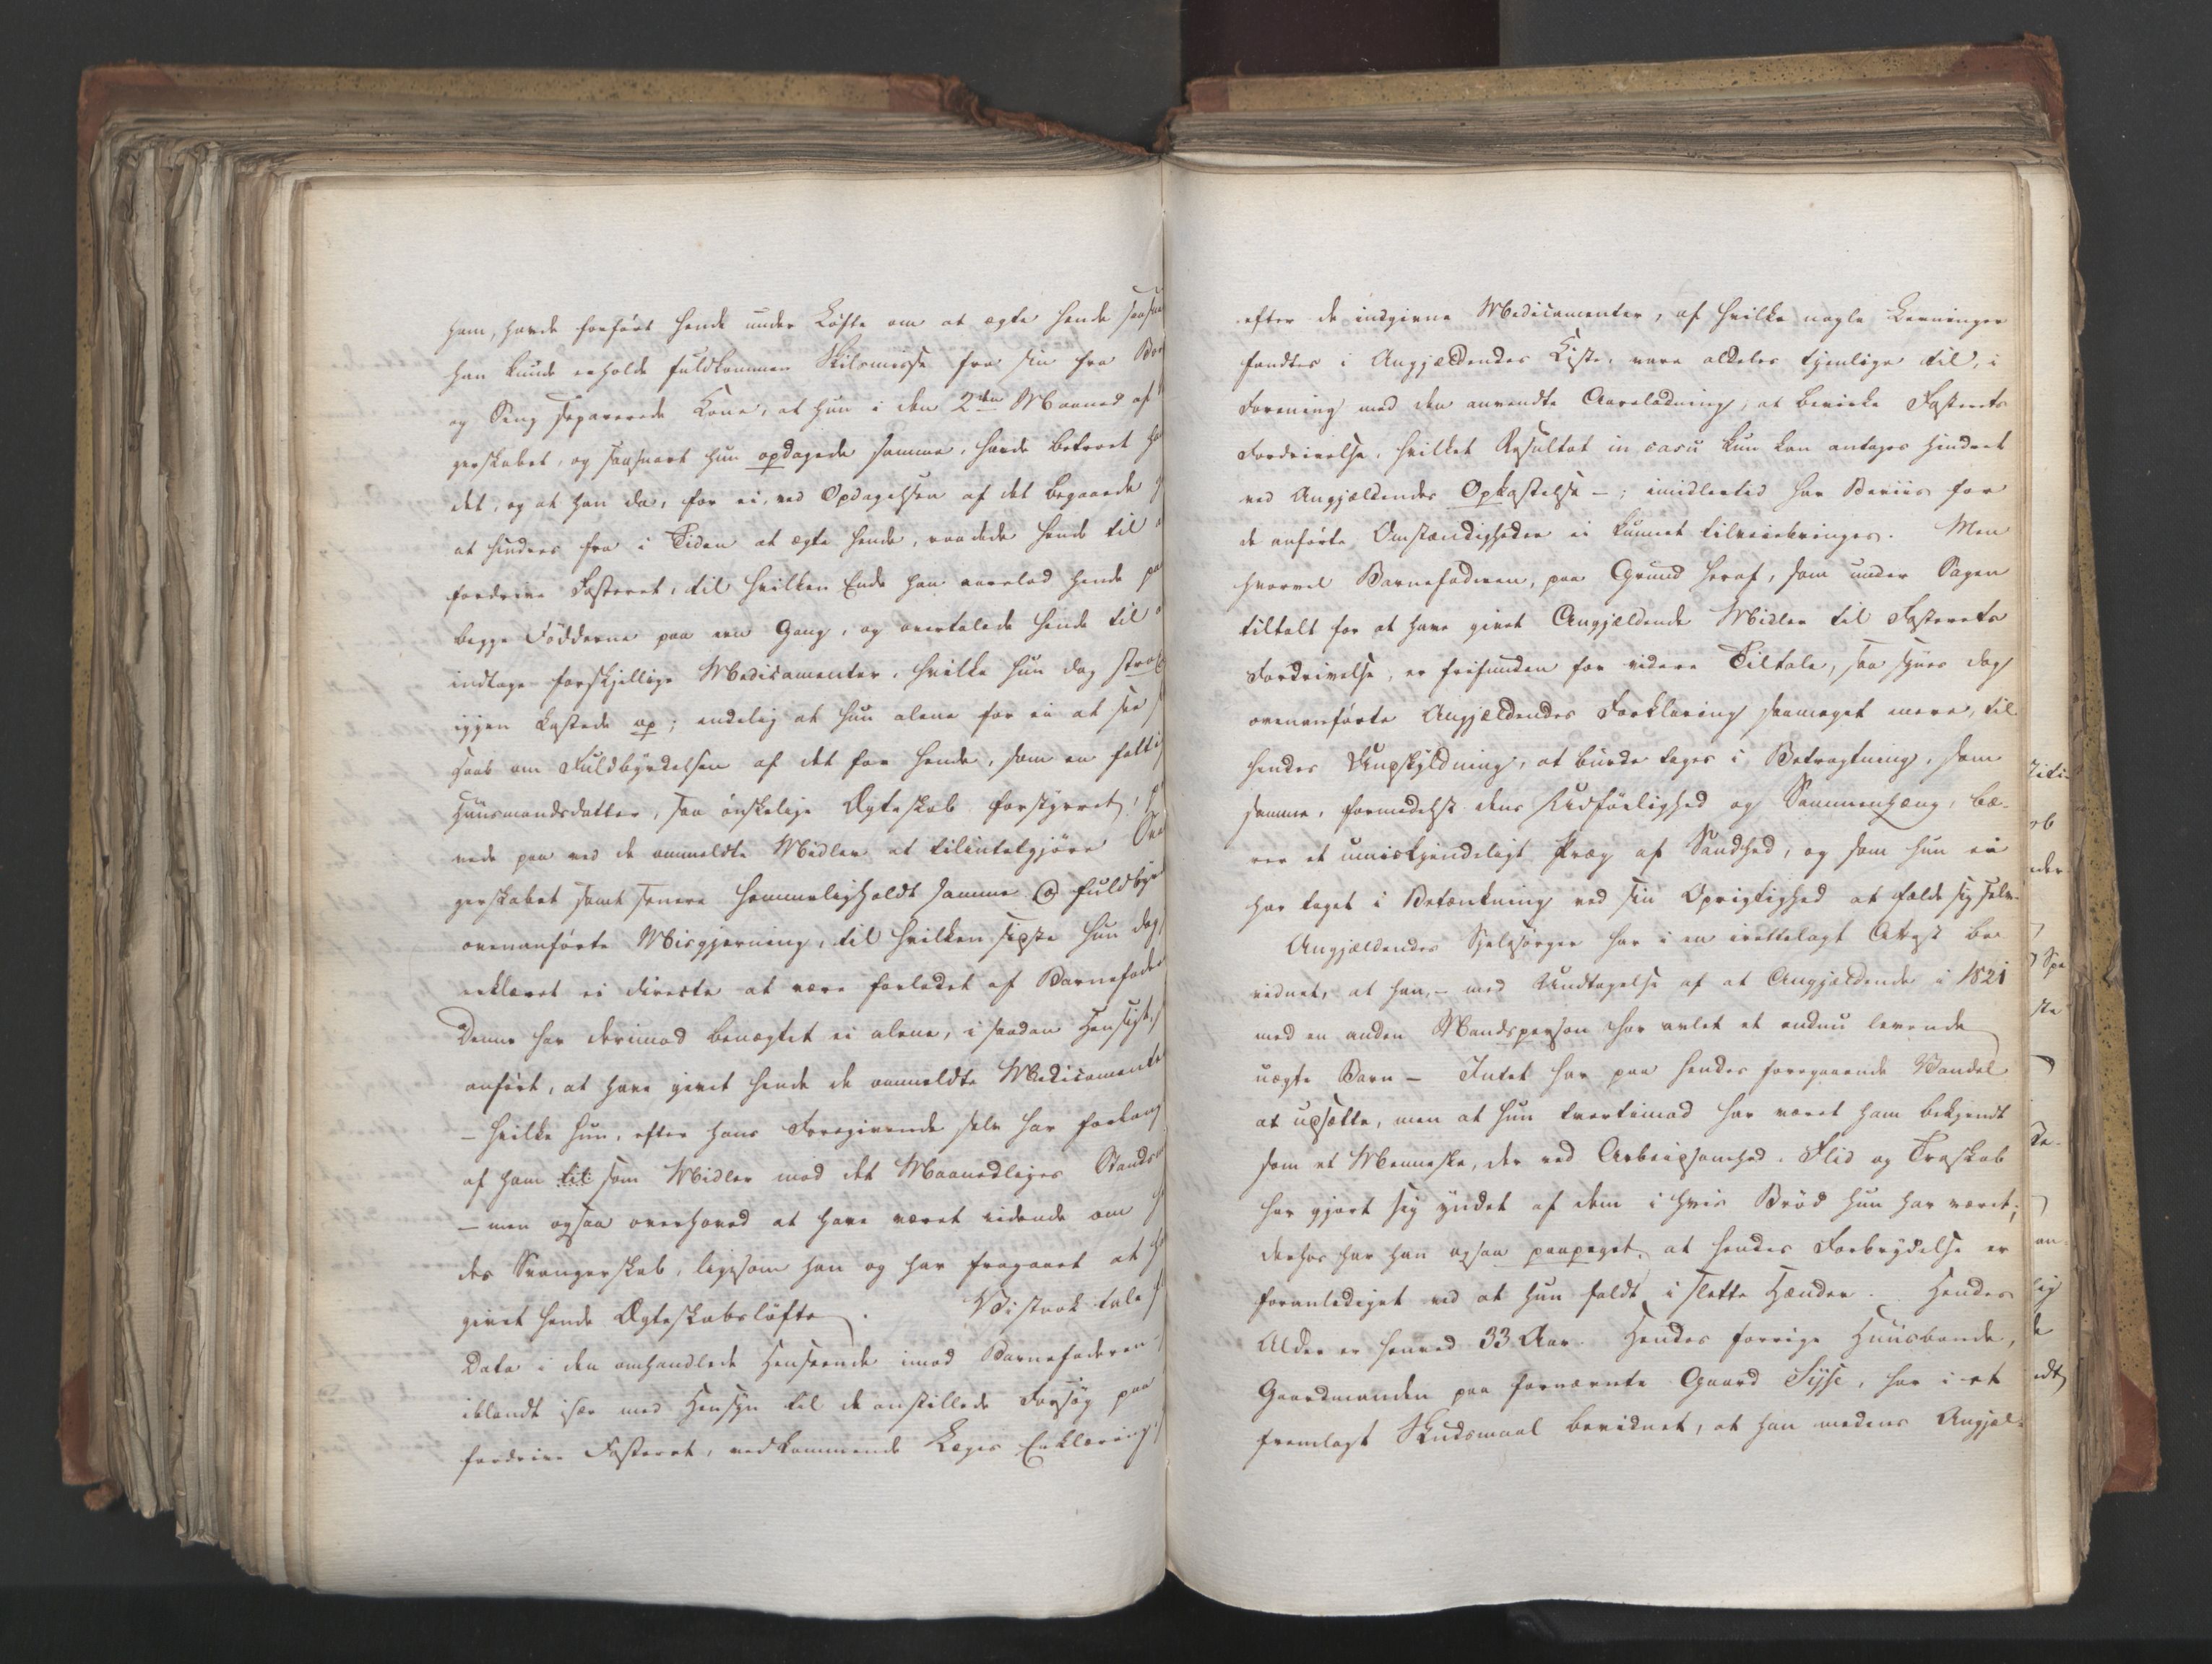 ham, havde forført hende under Løfte om at ægte hende saasna
han kunde erholde fuldkommen Skilsmisse fra sin fra Bor
og Seng separerede Kone, at hun i den 2den Maaned af
gerskabet, og saasnart hun opdagede samme, havde betroet ha
det, og at han da, for ei, ved Opdagelsen af det begaaede
at hindres fra i Tiden at ægte hende, raadede hende til
fordrive Fosteret, til hvilken Ende han aarelod hende paa
begge Fødderne paa een Gang, og overtalede hende til
indtage forskjellige Medicamenter, hvilke hun dog strax
igjen kastede op; endelig at hun alene for ei at see
Haab om Fuldbyrdelsen af det for hende, som en fatti
Huusmandsdatter, saa ønskelige Ægteskab forstyrret,
vede paa ved de ommeldte Midler at tilintetgjøre Svan
gerskabet samt senere hemmeligholdt samme og fuldbyr
ovenanførte Misgjerning, til hvilken sidste hun dog
erklæret ei directe at være forledet af Barnefader
Denne har derimod benægtet ei alene, i saadan Hensigt,
anført, at have givet hende de ommeldte Medicamente
– hvilke hun, efter hans Foregivende selv har forlang
af ham til som Midler mod det Maanedliges Stands
– men ogsaa overhoved at have været vidende om
des Svangerskab, ligesom han og har fragaaet at ha
givet hende Ægteskabsløfte. Vistnok tale
Data i den omhandlede Henseende imod Barnefaderen
iblandt især med Hensyn til de anstillede Forsøg paa
fordrive Fosteret, vedkommende Læges Erklæring,
efter de indgivne Medicamenter, af hvilke nogle Levninger
fandtes i Angjældendes Kiste, vare aldeles tjenlige til, i
Forening med den anvendte Aareladning, at bevirke Fosterets
Fordrivelse, hvilket Resultat in casu kun kan antages hindret
ved Angjældendes Opkastelse –; imidlertid har Beviis for
de anførte Omstændigheder ei kunnet tilveiebringes. Men
hvorvel Barnefaderen, paa Grund heraf, som under Sagen
tiltalt for at have givet Angjældende Midler til Fosterets
Fordrivelse, er frifunden for videre Tiltale, saa synes dog
ovenanførte Angjældendes Forklaring saameget mere, til
hendes Undskyldning, at burde tages i Betragtning, som
samme, formedelst dens Udførlighed og Sammenhæng, bæ-
rer et umiskjendeligt Præg af Sandhed, og som hun ei
har taget i Betænkning ved sin Oprigtighed at fælde sig selv.
Angjældendes Sjelesørger har i en irettelagt Attest be
vidnet, at han, – med Undtagelse af at Angjældende i 1821
med en anden Mandsperson har avlet et endnu levende
uægte Barn – Intet har paa hendes foregaaende Vandel
at udsætte, men at hun tvertimod har været ham bekjendt
som et Menneske, der ved Arbeidsomhed, Flid og Troskab
har gjort sig yndet af dem i hvis Brød hun har været;
derhos har han ogsaa paapeget, at hendes Forbrydelse er
foranlediget ved at hun faldt i slette Hænder. Hendes
Alder er henved 33 Aar. Hendes forrige Huusbonde,
Gaardmanden paa fornævnte Gaard Sysse, har i et
fremlagt Skudsmaal bevidnet, at han medens Angjæl-